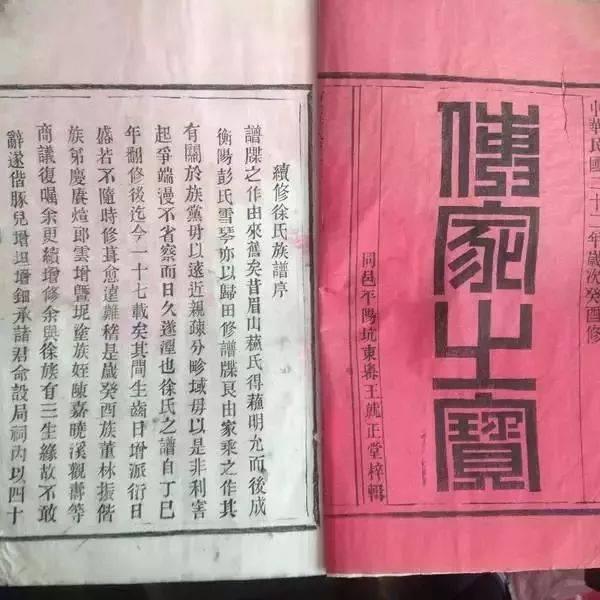 中華民國二十二年歲次癸酉修
傳家之寶
同邑平陽坑東嶴王正堂梓輯
續修徐氏族譜序
譜牒之作由來舊矣昔眉山蘇氏得蘇明允而後成
衡陽彭氏雪琴亦以歸田修譜牒良由家乘之作其
有關於族黨毋以遠近親疎分畛域毋以是非利害
起爭端漫不省察而日久遂湮也徐氏之譜自丁巳
年翻修後迄今一十七載矣其間生齒日增派衍日
盛若不隨時修葺愈遠難稽是歲癸酉族董林振偕
族弟慶賡煊郎雲增暨坭塗族姪陳嘉曉溪觀壽等
商議復囑余更續增修余與徐族有三生緣故不敢
辭遂偕豚兒增坦增鈿承諸君命設局祠內以四十